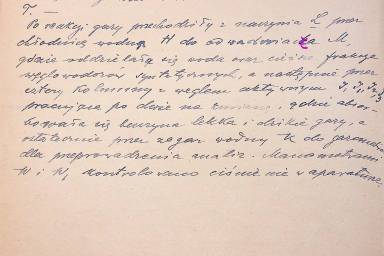 T. —
Po reakcji gazy przechodziły z naczynia L przez
chłodnicę wodną H do odwadniacza M,
gdzie oddzielała się woda oraz cięższe frakcje
węglowodorów syntetycznych, a następnie przez
cztery kolumny z węglem aktywnym J, J₁, J₂, J₃
pracujące po dwie na zmianę, gdzie absor-
bowała się benzyna lekka i dzikie gazy, a
ostatecznie przez zegar wodny K do gazometru
dla przeprowadzenia analiz. Manometrami
N i N₁ kontrolowano ciśnienie w aparaturze